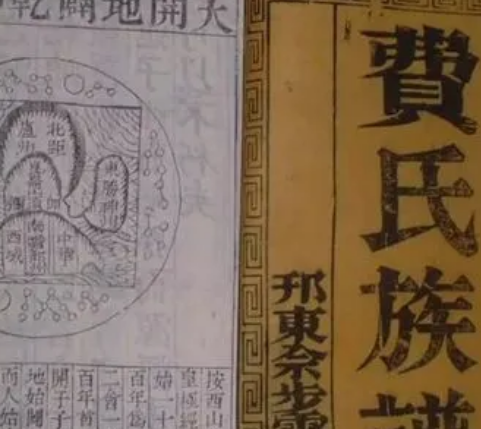 費氏族譜
東
步
天開地闢乾
北距
蘆州
東勝神州
中華
西域
按西山
皇極經
始一十
百年為
二會一
百年首
開子子
地始闢
而人始